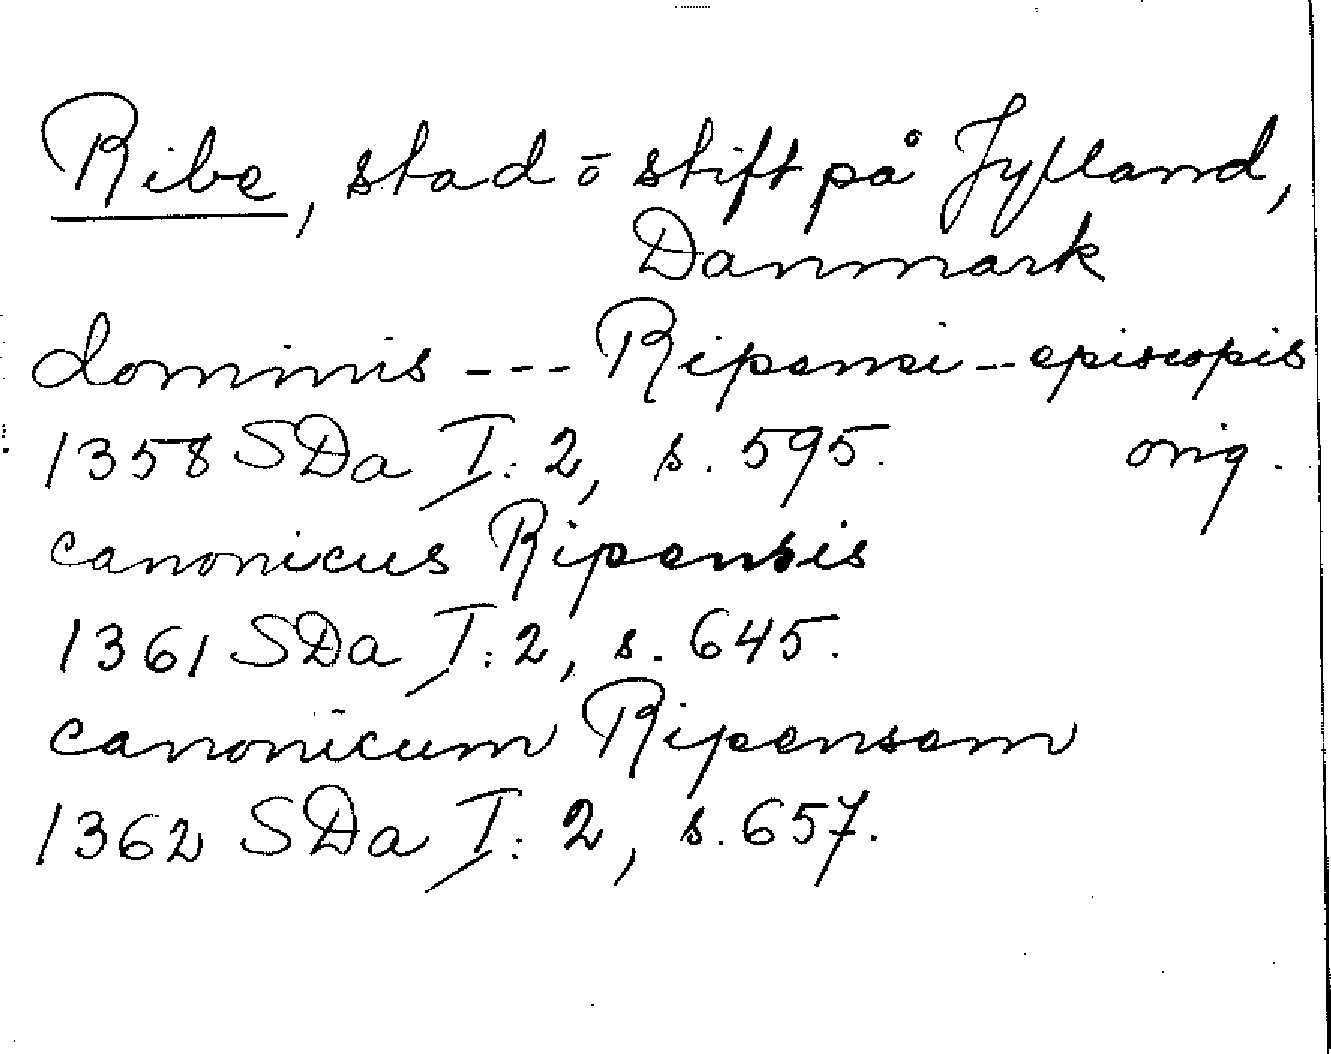 Ribe, stad ō stift på Jylland,
Danmark
dominis --- Ripensi -- episcopis
1358 SDa I:2, s. 595. orig.
canonicus Ripensis
1361 SDa I:2, s. 645.
canonicum Ripensem
1362 SDa I:2, s. 657.